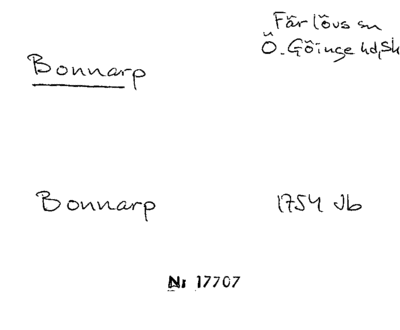 Färlövs sn
Ö. Göinge hd, Sk
Bonnarp
Bonnarp 1754 Jb
Nr 17707